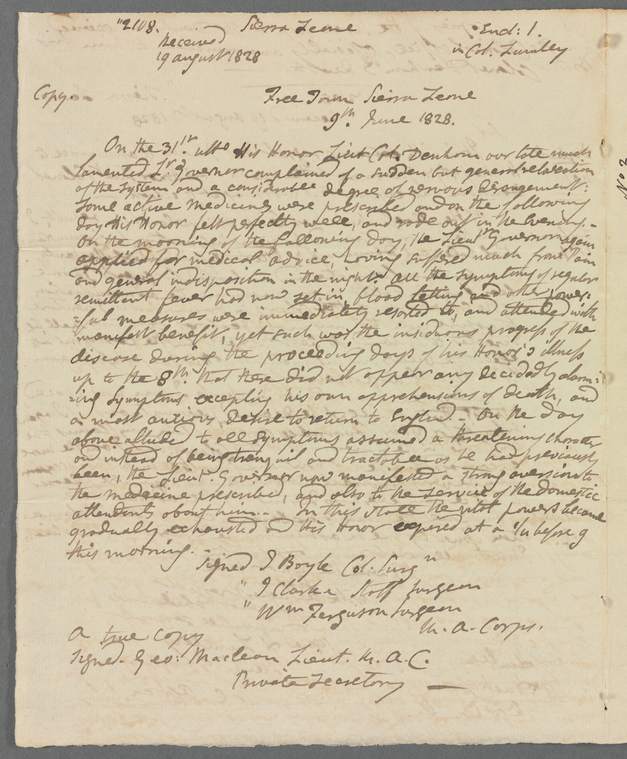 "2108. Sierra Leone Encl: 1.
Received in Col. Lumley
19 august 1828
Copy. Free Town Sierra Leone
9th. June 1828.
On the 31st ulto His Honor Lieut Col. Denham our late much
lamented Lt. Governor complained of a sudden but general relaxation
of the system and a considerable degree of nervous derangement:
Some active medicines were prescribed and on the following
day His Honor felt perfectly well, and rode out in the Evening.-
On the morning of the following day, the Lieut Governor again
applied for medical advice having suffered much from pain
and general indisposition in the night. All the symptoms of regular
remittent fever had now set in, blood letting and other power=
=ful measures were immediately resorted to, and attended with
manifest benefit, yet such was the insidious progress of the
disease during the proceeding days of his Honor's illness
up to the 8th. that there did not appear any decidedly alarm=
=ing symptoms excepting his own apprehensions of death, and
a most anxious desire to return to England - On the day
above alluded to all symptoms assumed a threatening character
and instead of being tranquil and tractable as he had previously
been, the Lieut. Governor now manifested a strong aversion to
the medicine prescribed, and also to the service of the domestic
attendants about him.- In this state the vital powers became
gradually exhausted and His Honor expired at a 1/4 before 9
this morning.-
Signed J Boyle Col. Surgn
" J Clarke Staff Surgeon
" Wm Ferguson Surgeon
M. A. Corps.
A true copy
Signed. Geo: Maclean Lieut. M. A. C.
Private Secretary —
No 2